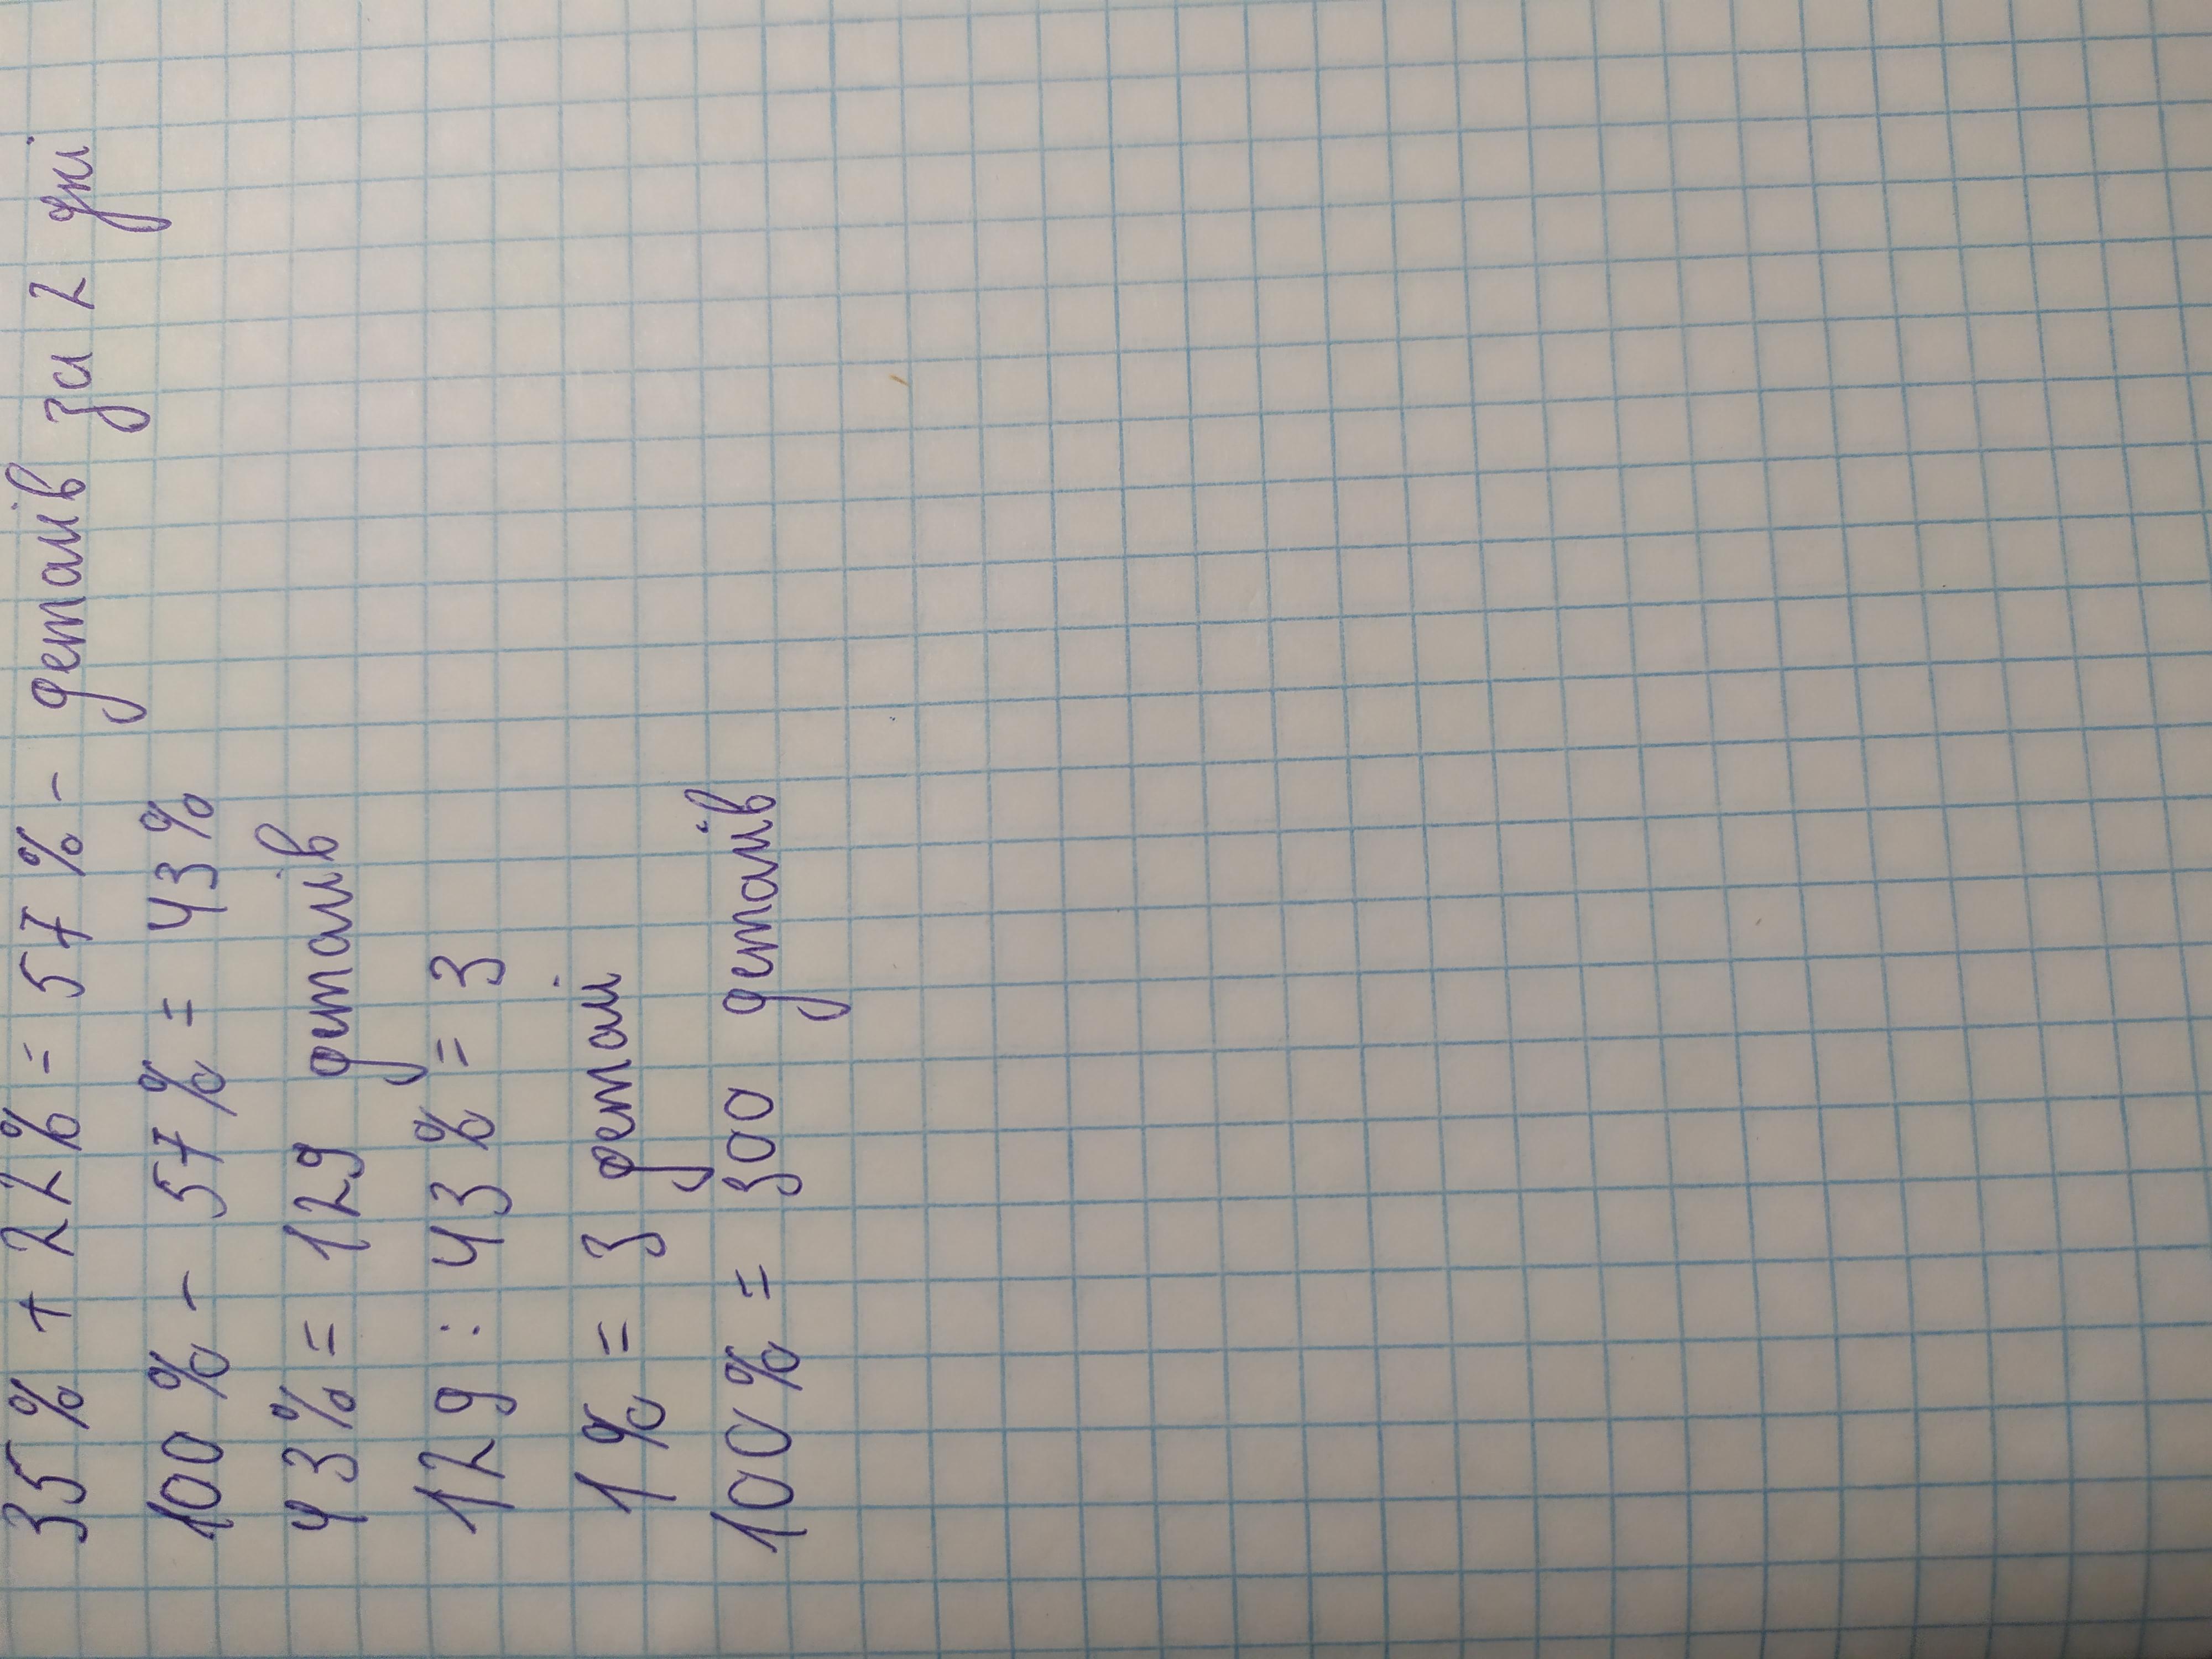 35% + 22% = 57% - деталів за 2 дні
100% - 57% = 43%
43% = 129 деталів
129 : 43% = 3
1% = 3 деталі
100% = 300 деталів